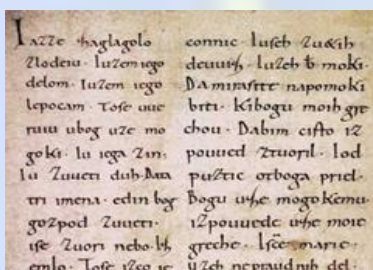 Iazze zaglagolo
zlodeiu. Iuzem iego
delom. Iuzem iego
lepocam. Tose uue
ruiu ubog uze mo
goki. Iu iega zin.
Iu zuueti duh. Data
tri imena. edin bog
gozpod zuueti.
ise zuori nebo.
emlo. Tose izco ie
connic. luseh zu&ih
deuuih. luzeh moki.
Da mirasite napomoki
biti. Kibogu moih gre
chou. Dabim cisto iz
pouued ztuoril. Iod
puztic otboga priel.
Bogu uze mogokemu.
izpouuede uze moie
greche. Isce marie.
uzeh nepraudnih del.